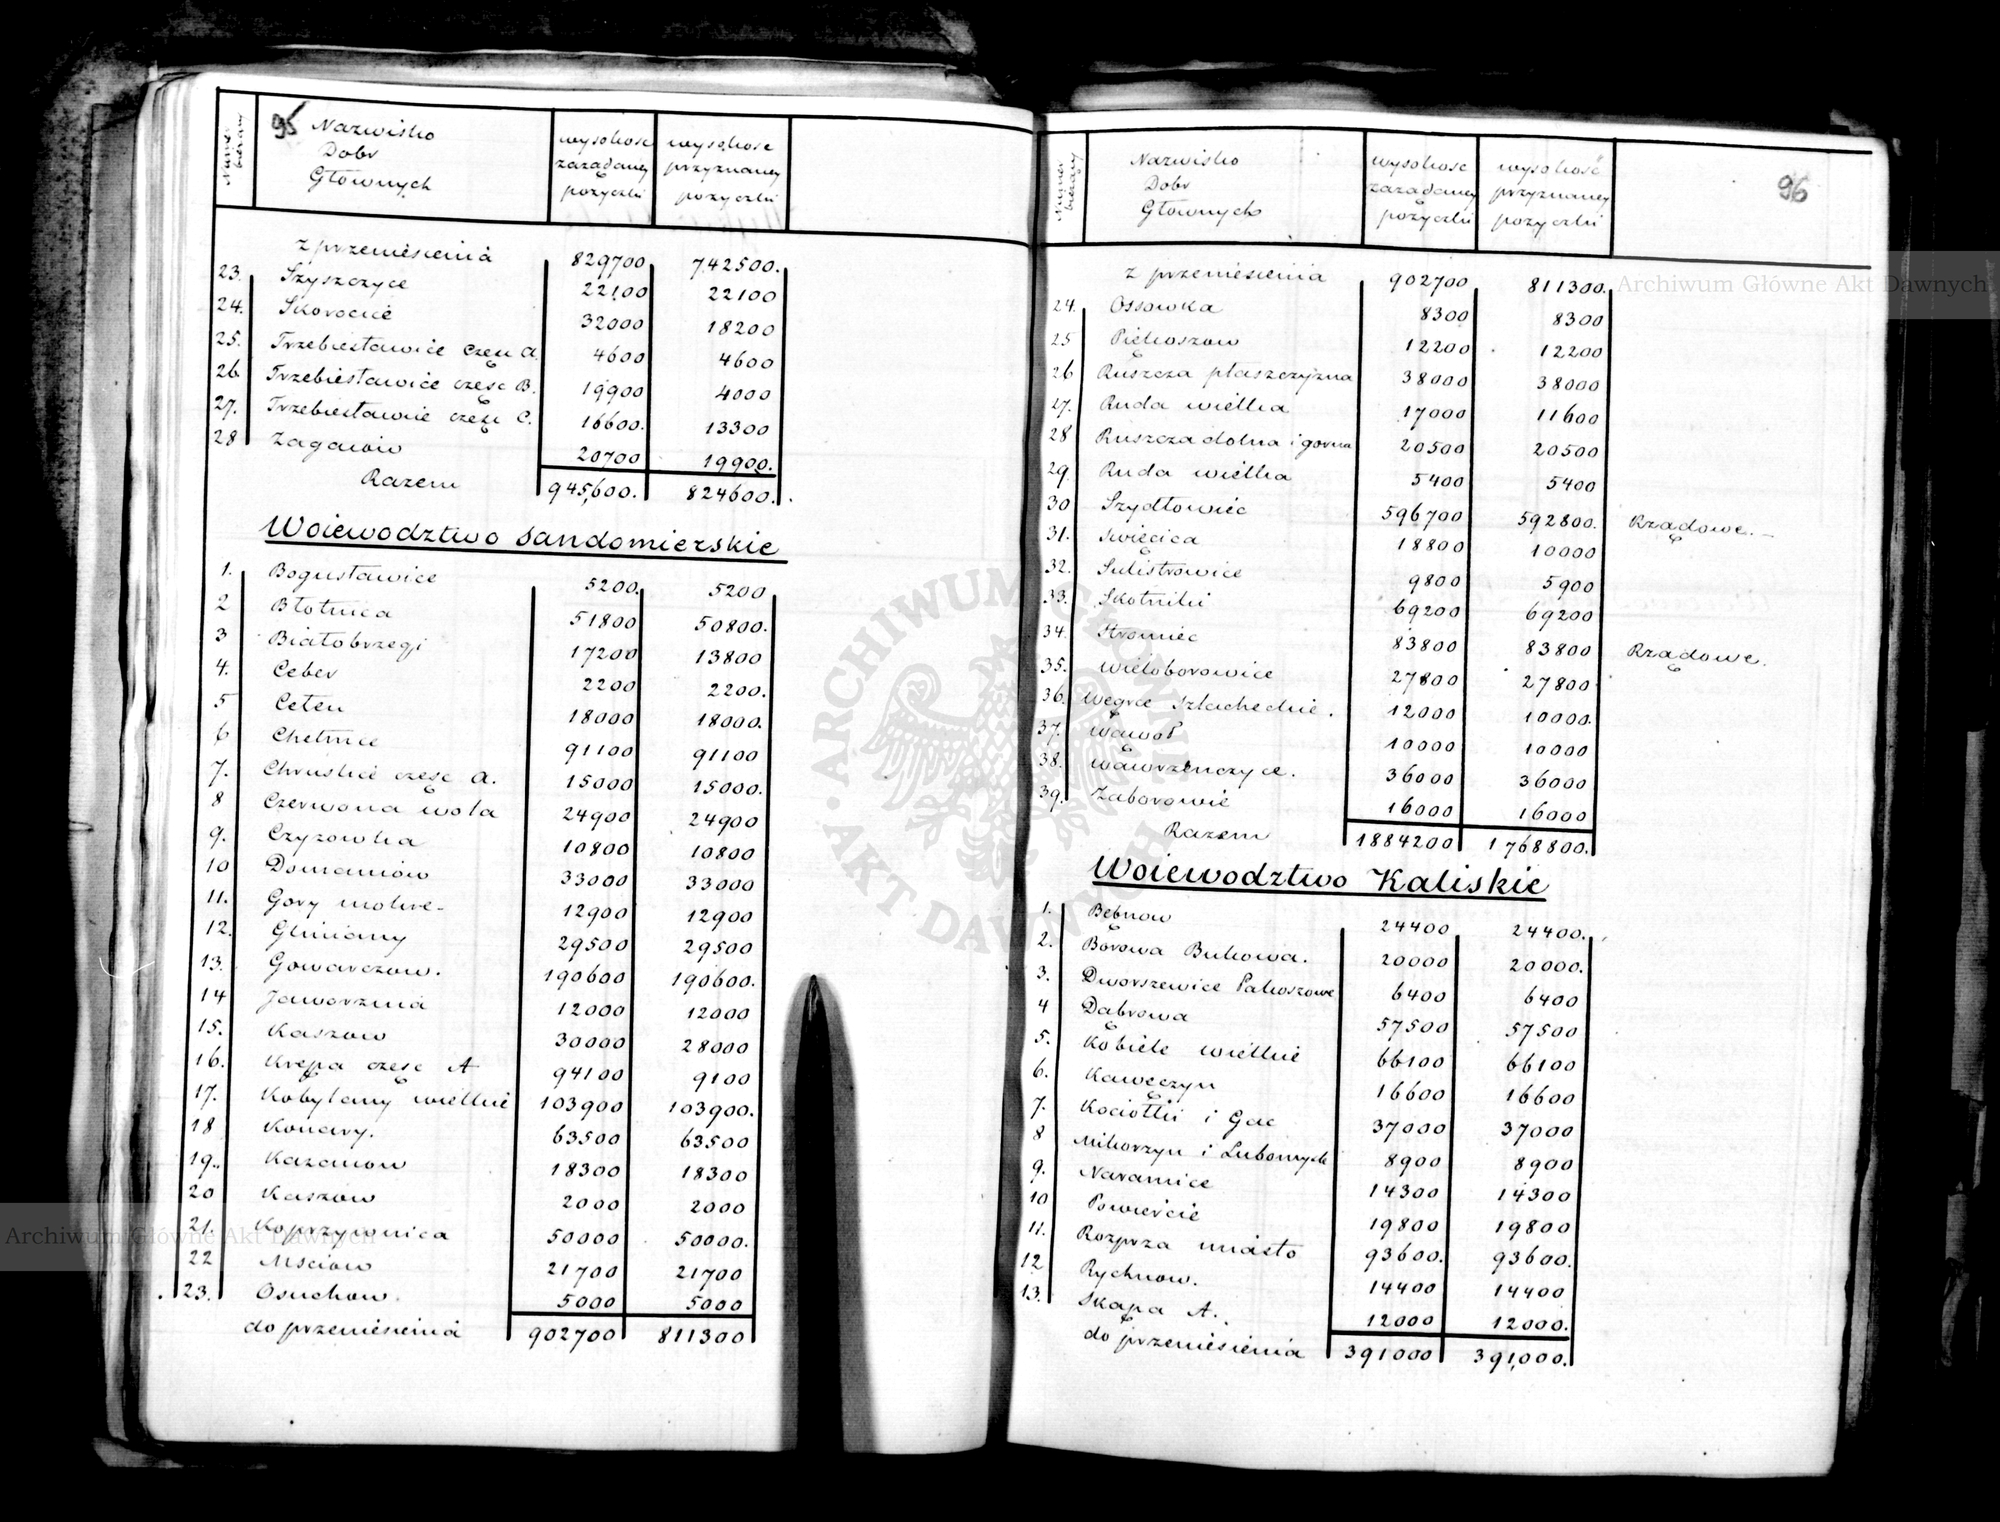 95
Numer bieżący
Nazwisko
Dobr
Głownych
wysokosc
zazadaney
pożyczki
wysokosc
przyznaney
pozyczki
z przeniesienia 829700 742500.
23. Szyszczyce 22100 22100
24. Skorocice 32000 18200
25. Trzebiesławice Częsc A. 4600 4600
26 Trzebiesławice częsc B. 19900 4000
27. Trzebiesławice częsc C. 16600. 13300
28 Zagaiow 20700 19900.
Razem 945,600. 824600.
Woiewodztwo Sandomierskie
1. Bogusławice 5200. 5200
2 Błotnica 51800 50800.
3 Białobrzegi 17200 13800
4. Ceber 2200 2200.
5 Ceteń 18000 18000.
6 Chetmce 91100 91100
7. Chruslice częsc A. 15000 15000.
8 Czerwona wola 24900 24900
9. Czyzowka 10800 10800
10 Domaniow 33000 33000
11. Gory mokre- 12900 12900
12. Gliniany 29500 29500
13. Gowarczow. 190600 190600.
14 Jaworznia 12000 12000
15. Kaszow 30000 28000
16. Krępa częsc A 94100 9100
17. Kobylany wielkie 103900 103900.
18 Konary. 63500 63500
19. Kazanow 18300 18300
20 Kaszow 2000 2000
21. Koprzywnica 50000 50000.
22 Msciow 21700 21700
23. Osuchow. 5000 5000
do przeniesienia 902700 811300
96
Numer bieżący
Nazwisko
Dobr
Głownych
wysokosc
zazadaney
pożyczki
wysokość
przyznaney
pozyczki
z przeniesienia 902700 811300.
24. Ossowka 8300 8300
25 Piękoszow 12200 12200
26 Ruszcza płaszczyzna 38000 38000
27. Ruda wielka 17000 11600
28 Ruszcza dolna i gorna 20500 20500
29. Ruda wielka 5400 5400
30 Szydłowiec 596700 592800. Rządowe.
31. Swięcica 18800 10000
32. Sulistrowice 9800 5900
33. Skotniki 69200 69200
34. Stromiec 83800 83800 Rządowe.
35. Wieloborowice 27800 27800
36. Węgrce Szlacheckie. 12000 10000.
37. Wąwoł 10000 10000
38. Wawrzenczyce. 36000 36000
39. Zaborowie 16000 16000
Razem 1884200 1768800.
Woiewodztwo Kaliskie
1. Bębnow 24400 24400.
2. Borowa Bukowa. 20000 20000.
3. Dworszewice Pakoszowe 6400 6400
4 Dąbrowa 57500 57500
5. Kobiele wielkie 66100 66100
6. Kawęczyn 16600 16600
7. Kociołki i Gac 37000 37000
8 Mikorzyn i Lubomyśle 8900 8900
9. Naramice 14300 14300
10 Powiercie 19800 19800
11. Rozprza miasto 93600. 93600.
12 Rychnow. 14400 14400
13. Skąpa A. 12000 12000.
do przeniesienia 391000 391,000.
Archiwum Główne Akt Dawnych
Archiwum Główne Akt Dawnych
ARCHIWUM GŁÓWNE
AKT DAWNYCH